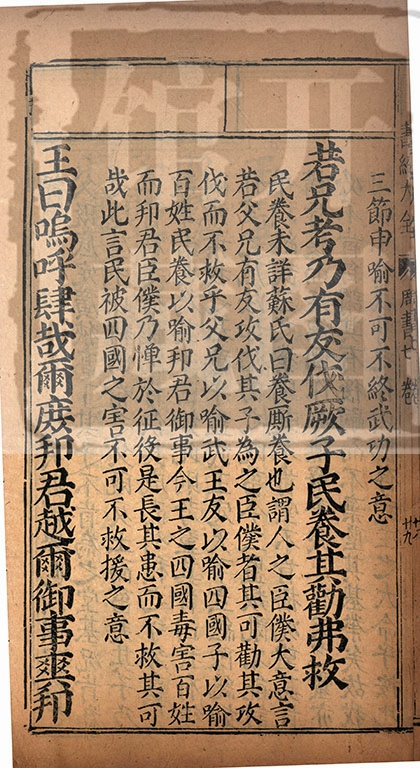 三節申喻不可不終武功之意
若兄考乃有友伐厥子民養其勸弗救
民養未詳蘇氏曰養厮養也謂人之臣僕大意言
若父兄有友攻伐其子為之臣僕者其可勸其攻
伐而不救乎父兄以喻武王友以喻四國子以喻
百姓民養以喻邦君御事今王之四國毒害百姓
而邦君臣僕乃憚於征役是長其患而不救其可
哉此言民被四國之害不可不救援之意
王曰嗚呼肆哉爾庶邦君越爾御事爽邦